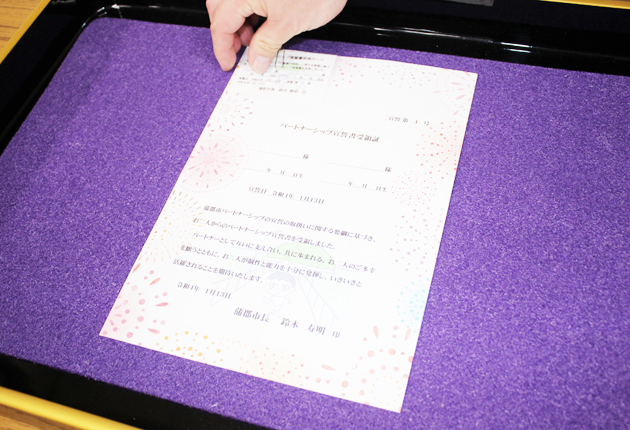 宣誓 第 1 号
パートナーシップ宣誓書受領証
様 様
年 月 日生 年 月 日生
宣誓日 令和4年 1月13日
蒲郡市パートナーシップの宣誓の取扱いに関する要綱に基づき、
お二人からのパートナーシップ宣誓書を受領しました。
パートナーとして互いに支え合い、共に歩まれる、お二人のご多幸
を願うとともに、お二人が個性と能力を十分に発揮し、いきいきと
活躍されることを期待いたします。
令和4年 1月13日
蒲郡市長 鈴木 寿明 印